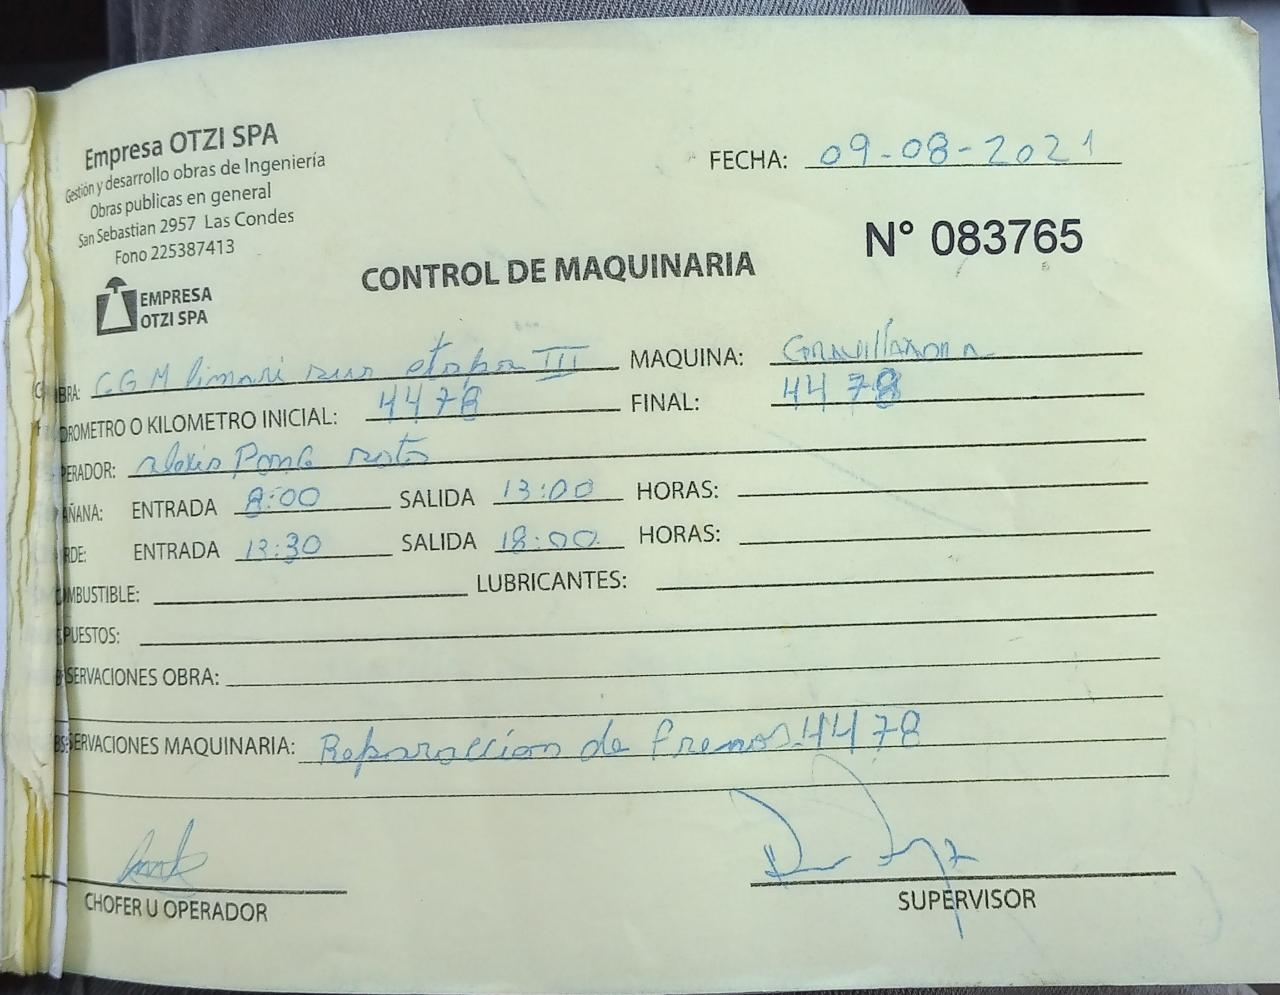 Empresa OTZI SPA
Gestión y desarrollo obras de Ingeniería
Obras publicas en general
San Sebastian 2957 Las Condes
Fono 225387413
EMPRESA
OTZI SPA
FECHA: 09-08-2021
N° 083765
CONTROL DE MAQUINARIA
BRA: CGM limari sur etapa III MAQUINA: Gravilladora
DROMETRO O KILOMETRO INICIAL: 4478 FINAL: 4478
PERADOR: Alexis Ponce
AÑANA: ENTRADA 8:00 SALIDA 13:00 HORAS:
RDE: ENTRADA 13:30 SALIDA 18:00 HORAS:
MBUSTIBLE: LUBRICANTES:
PUESTOS:
SERVACIONES OBRA:
SERVACIONES MAQUINARIA: Reparaccion de frenos 4478
CHOFER U OPERADOR
SUPERVISOR